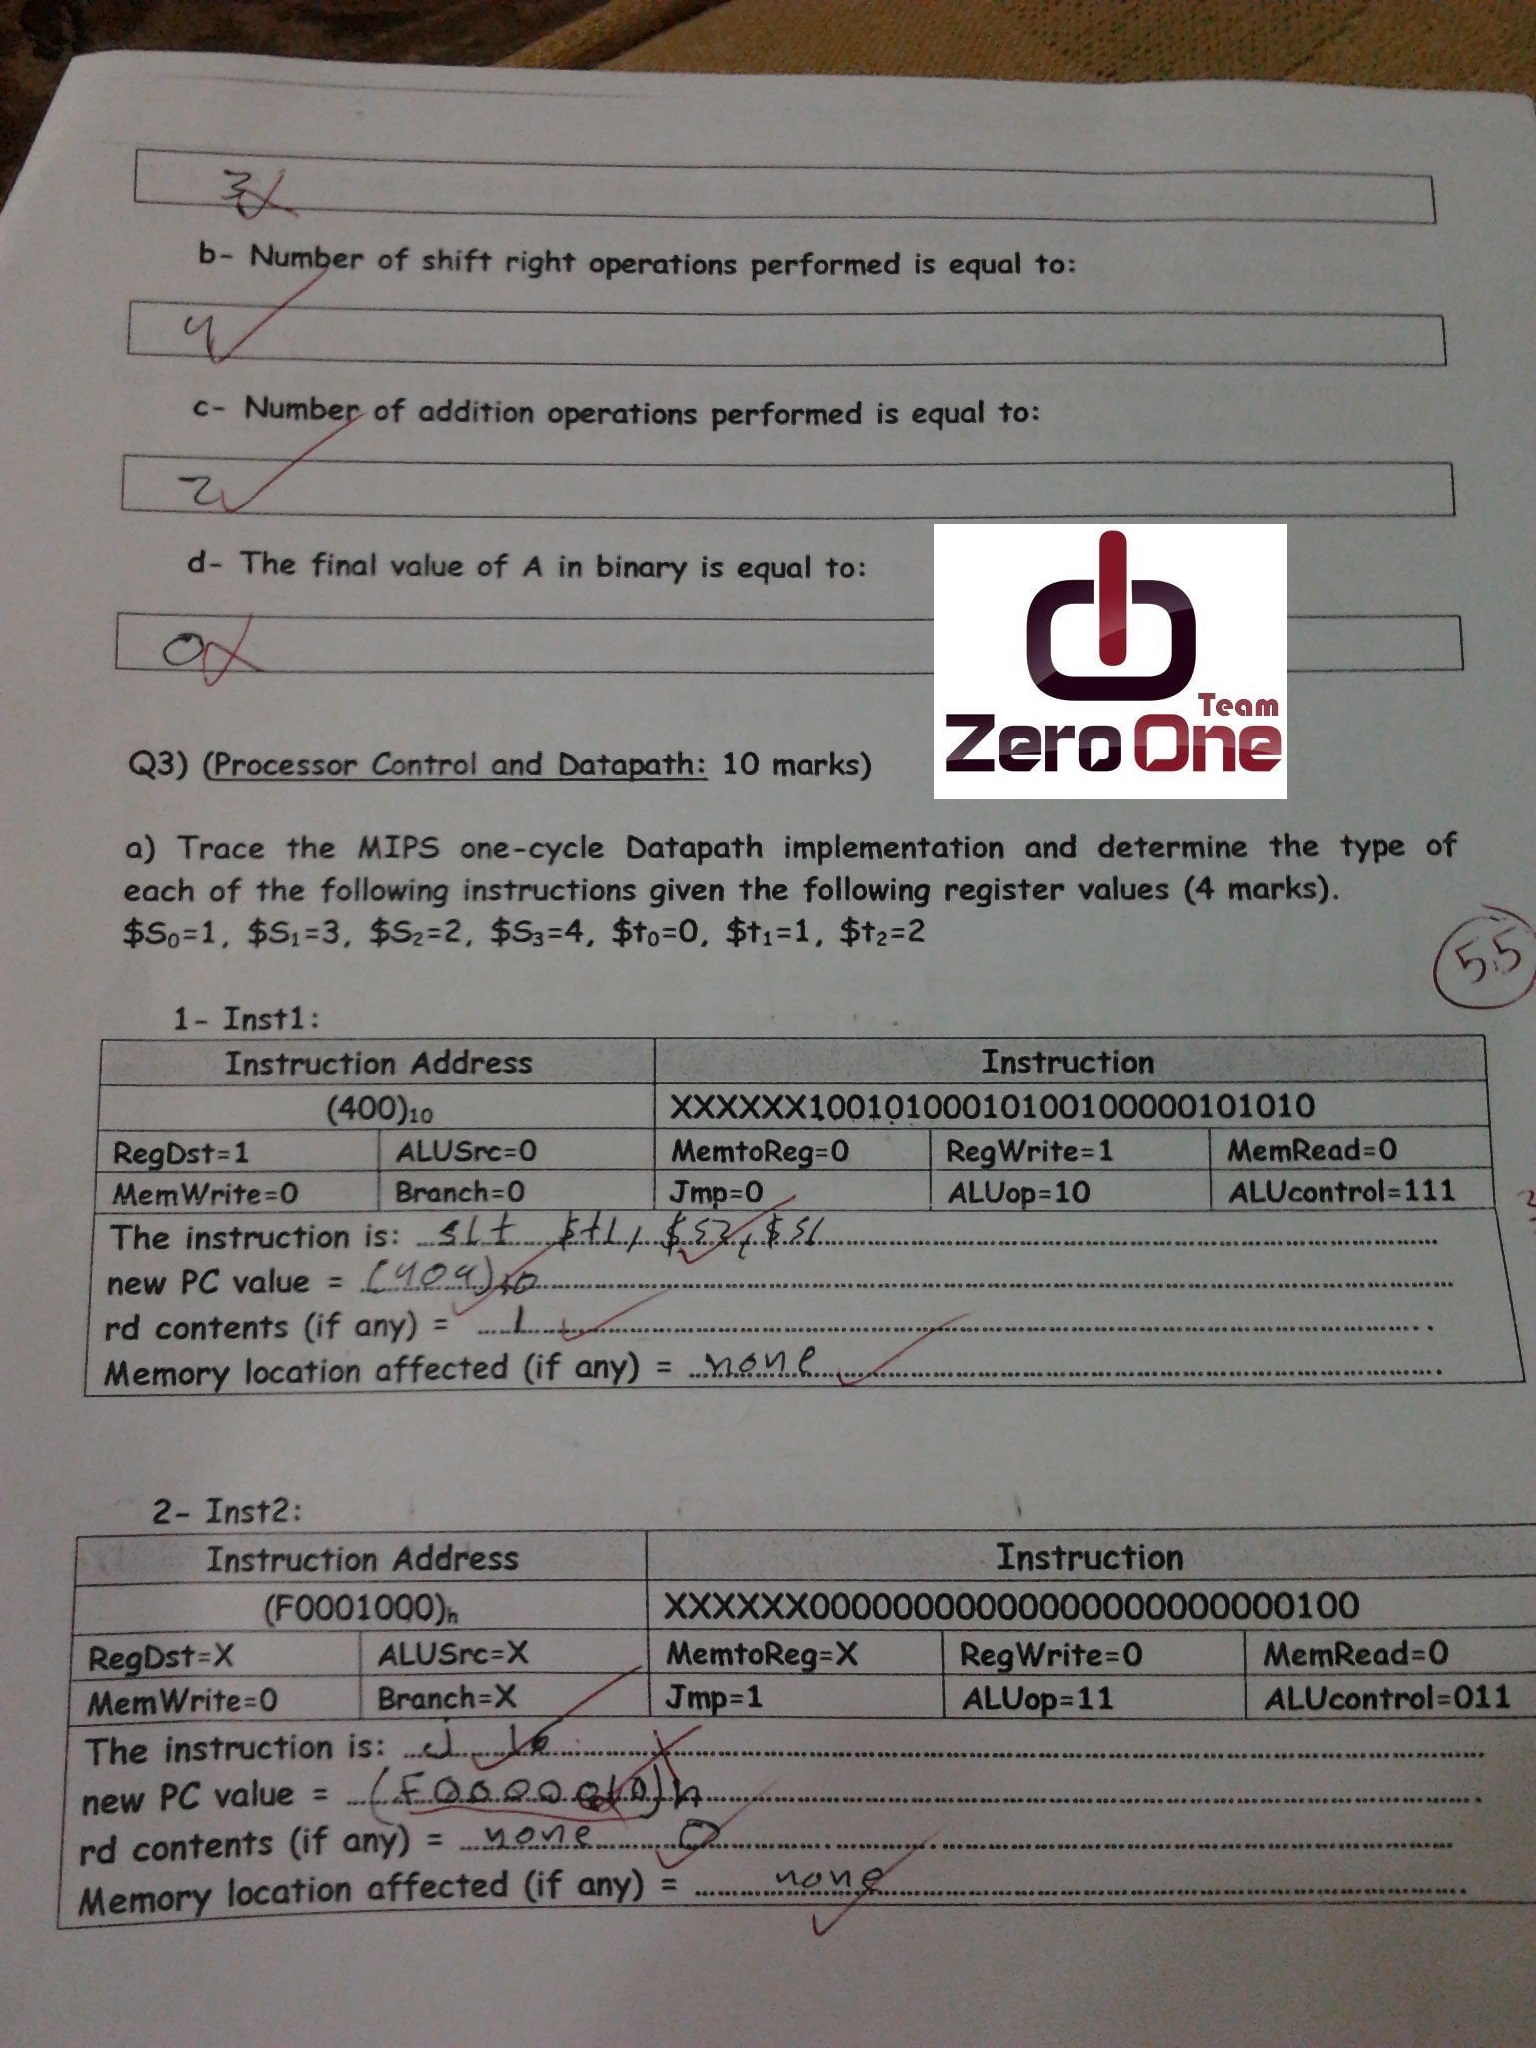 3
b- Number of shift right operations performed is equal to:
4
c- Number of addition operations performed is equal to:
2
d- The final value of A in binary is equal to:
0
Team
Zero One
Q3) (Processor Control and Datapath: 10 marks)
a) Trace the MIPS one-cycle Datapath implementation and determine the type of
each of the following instructions given the following register values (4 marks).
$S0=1, $S1=3, $S2=2, $S3=4, $t0=0, $t1=1, $t2=2
5.5
1- Inst1:
Instruction Address Instruction
(400)10 XXXXXX10010100010100100000101010
RegDst=1 ALUSrc=0 MemtoReg=0 RegWrite=1 MemRead=0
MemWrite=0 Branch=0 Jmp=0 ALUop=10 ALUcontrol=111
The instruction is: slt $t1, $s2, $s1
new PC value = (404)10
rd contents (if any) = 1
Memory location affected (if any) = none
2- Inst2:
Instruction Address Instruction
(F0001000)h XXXXXX00000000000000000000000100
RegDst=X ALUSrc=X MemtoReg=X RegWrite=0 MemRead=0
MemWrite=0 Branch=X Jmp=1 ALUop=11 ALUcontrol=011
The instruction is: J
new PC value = (F0000010)h
rd contents (if any) = none 0
Memory location affected (if any) = none